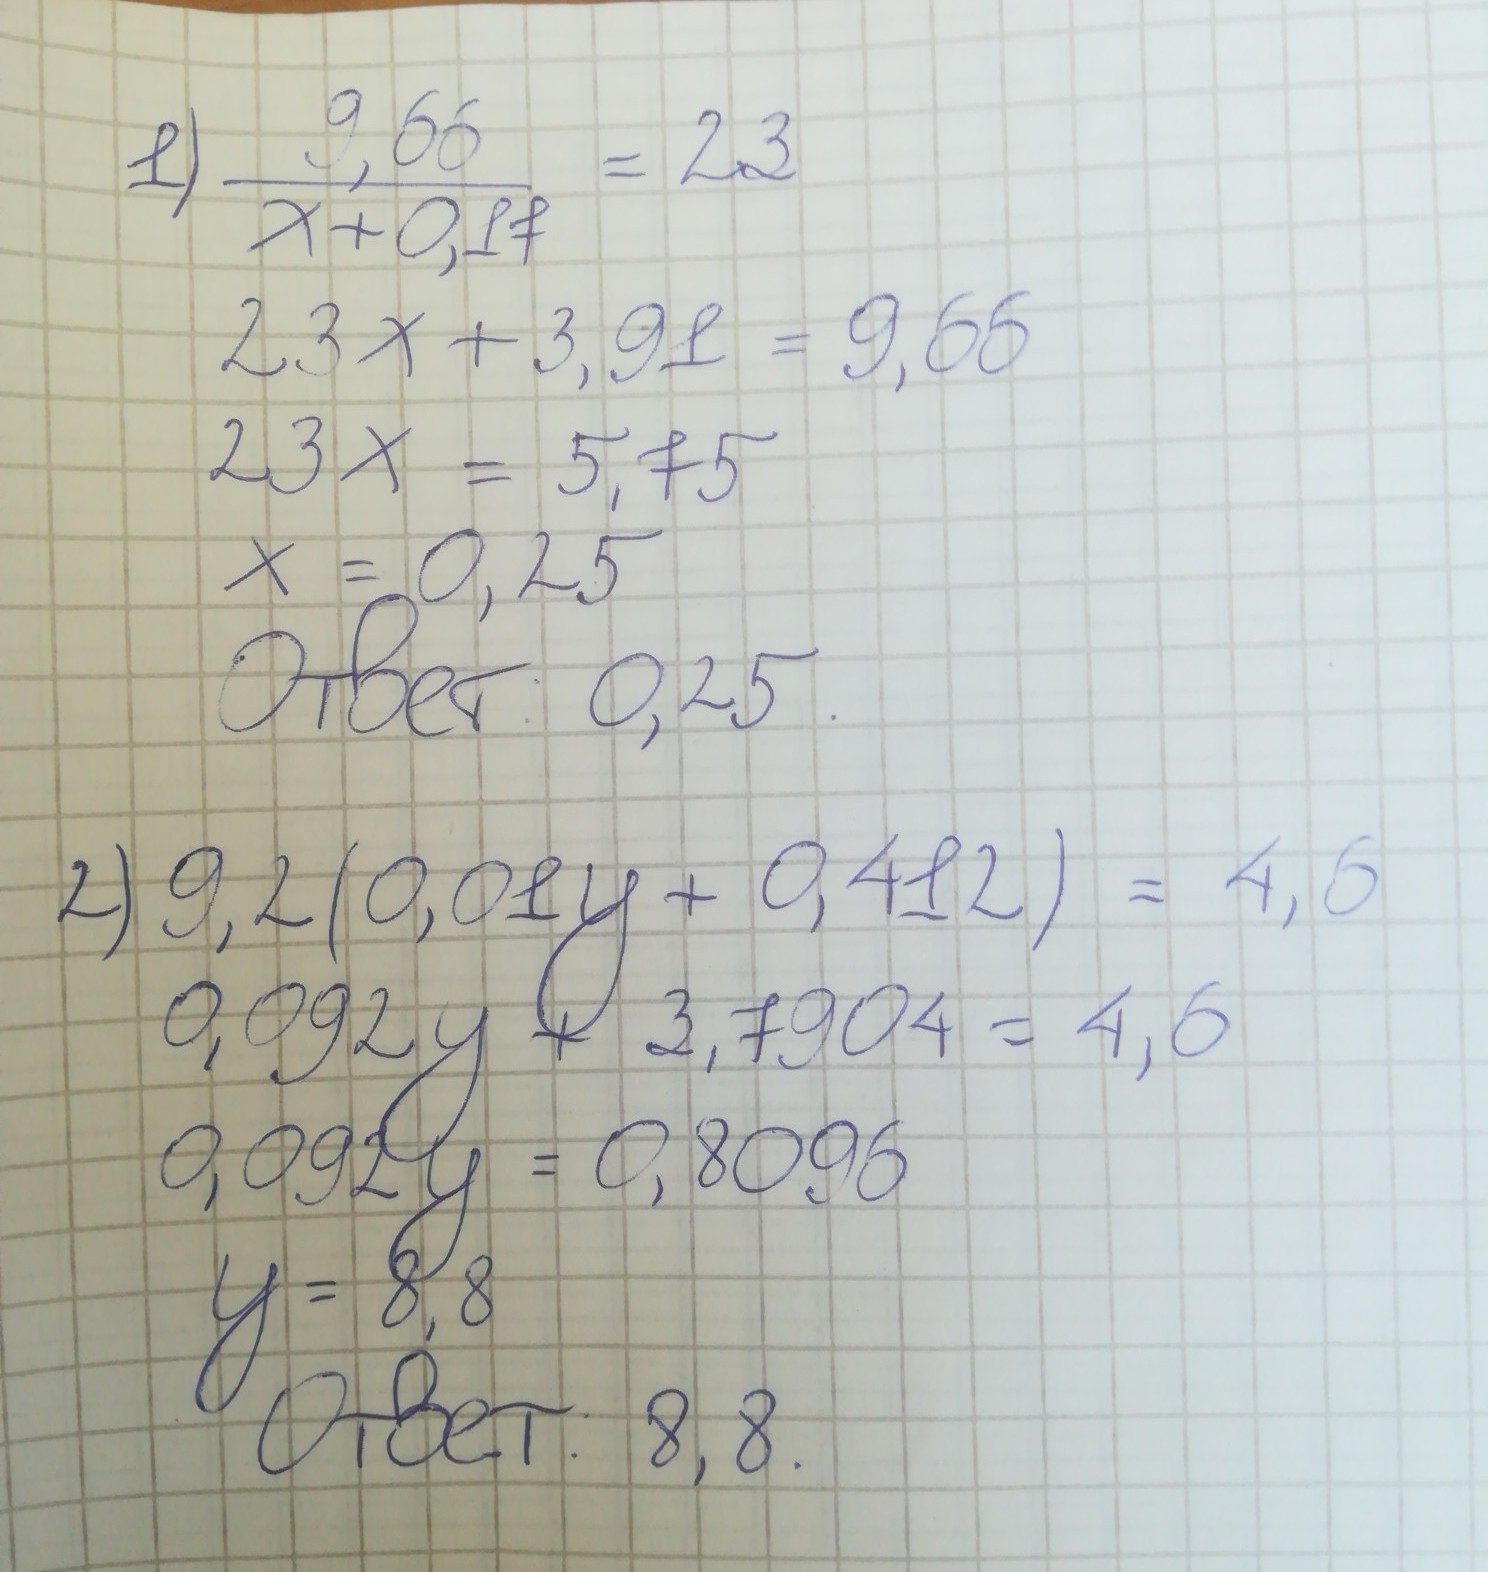 1) 9,66 / x+0,17 = 23
23x + 3,91 = 9,66
23x = 5,75
x = 0,25
Ответ: 0,25.
2) 9,2(0,01y + 0,412) = 4,6
0,092y + 3,7904 = 4,6
0,092y = 0,8096
y = 8,8
Ответ: 8,8.